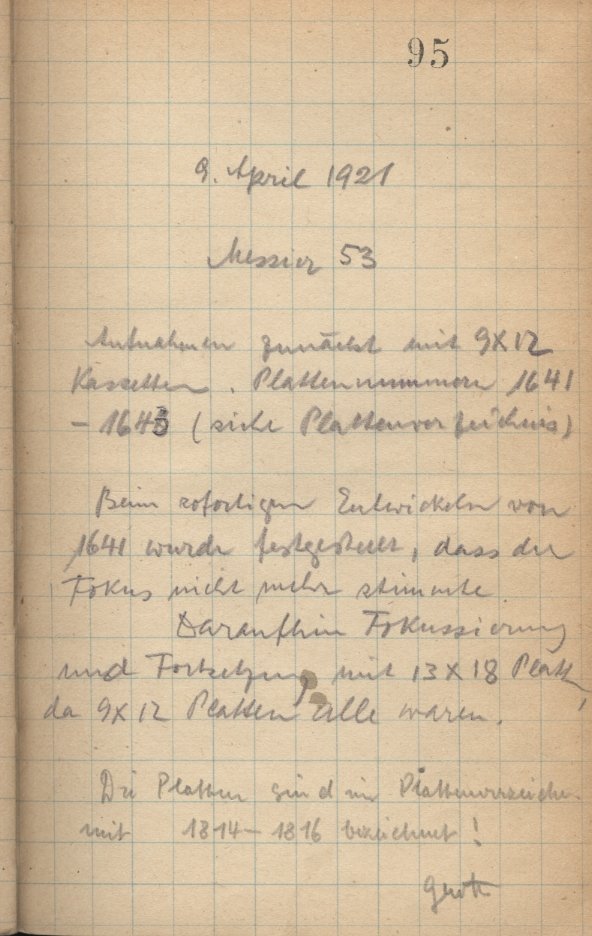 95
9. April 1921
Messier 53
Aufnahmen zunächst mit 9X12
Kassetten. Plattennummern 1641
- 1643 (siehe Plattenverzeichnis)
Beim sofortigen Entwickeln von
1641 wurde festgestellt, dass der
Fokus nicht mehr stimmte.
Daraufhin Fokussierung
und Fortsetzung mit 13X18 Platt,
da 9X12 Platten alle waren.
Die Platten sind im Plattenverzeichn.
mit 1814-1816 bezeichnet!